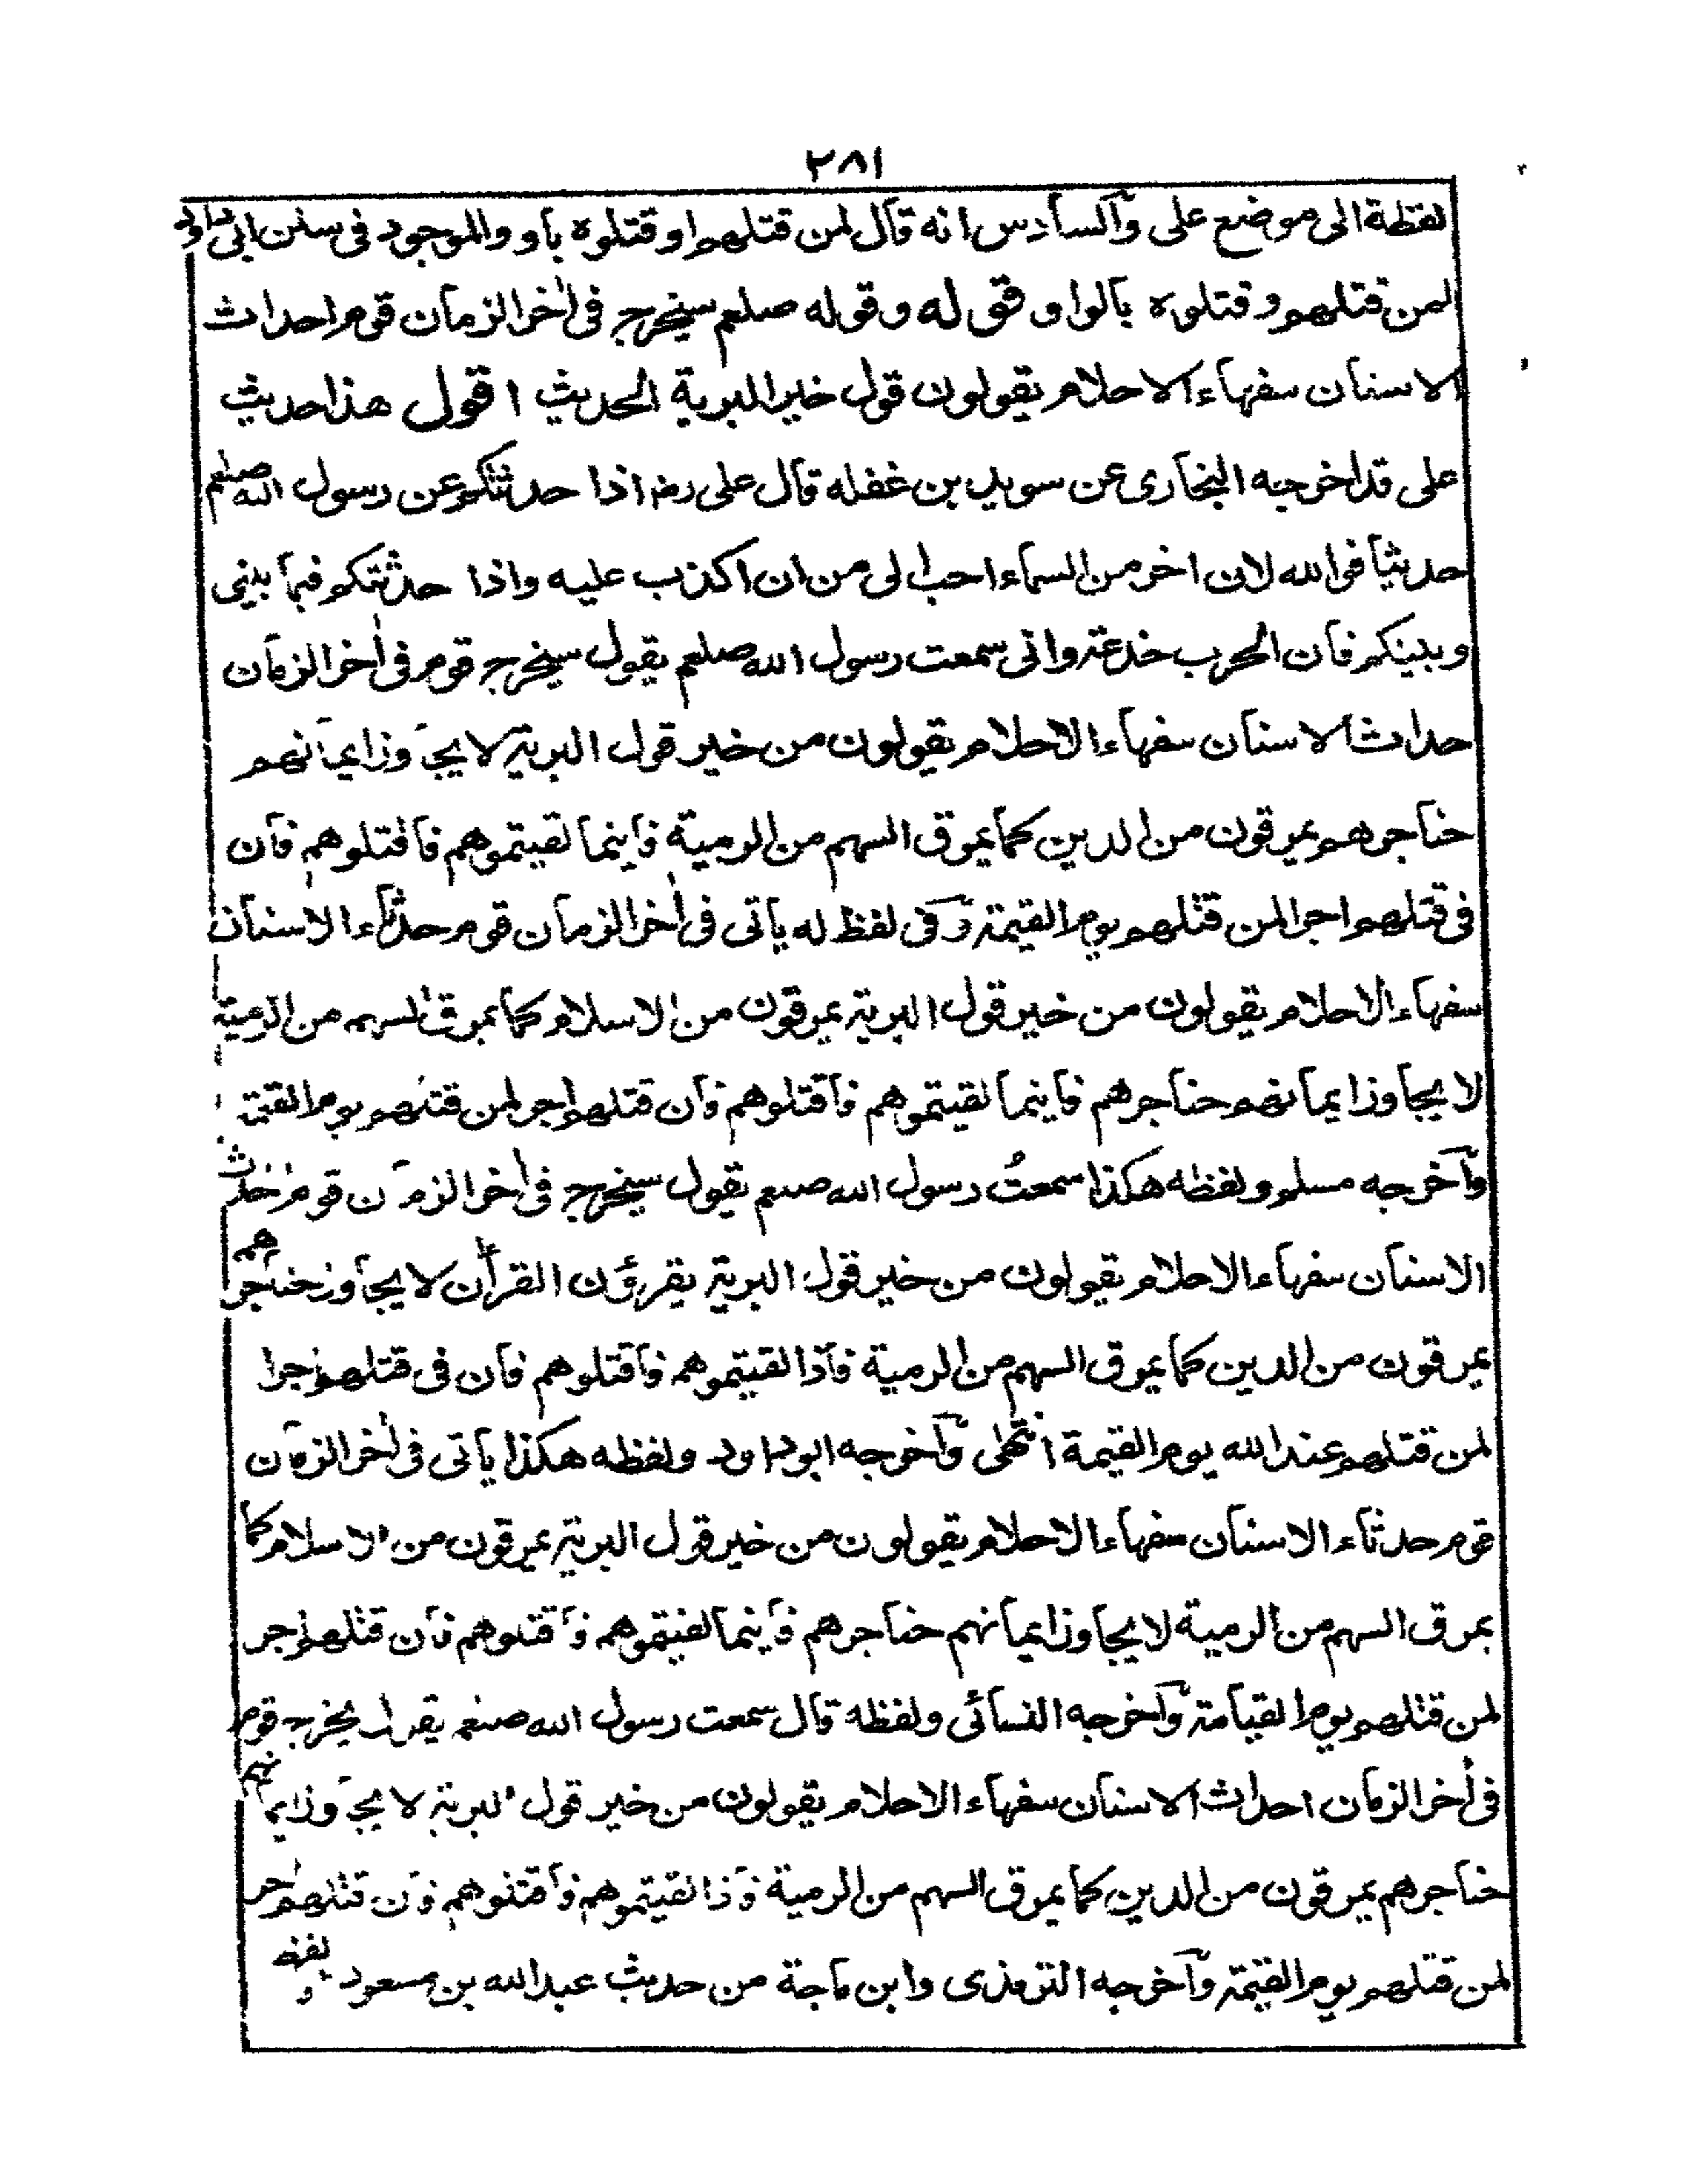 ٢٨١
لفظة الى موضع على والسادس انه قال لمن قتلهم او قتلوه باو والموجود فى سنن ابى داود
لمن قتلهم و قتلوه بالواو قوله وقوله صلعم سيخرج فى اٰخر الزمان قوم احداث
الاسنان سفهاء الاحلام يقولون قول خير البرية الحديث اقول هذا حديث
على قد اخرجه البخارى عن سويد بن غفله قال على رض اذا حدثتكم عن رسول الله صلعم
حديثا فوالله لان اخر من السماء احب الى من ان اكذب عليه واذا حدثتكم فيما بينى
وبينكم فان الحرب خدعة وانى سمعت رسول الله صلعم يقول سيخرج قوم فى اٰخر الزمان
حداث الاسنان سفهاء الاحلام يقولون من خير قول البرية لا يجاوز ايمانهم
حناجرهم يمرقون من الدين كما يمرق السهم من الرمية فاينما لقيتموهم فاقتلوهم فان
فى قتلهم اجرا لمن قتلهم يوم القيمة وفى لفظ له ياتى فى اٰخر الزمان قوم حدثاء الاسنان
سفهاء الاحلام يقولون من خير قول البرية يمرقون من الاسلام كما يمرق السهم من الرمية
لا يجاوز ايمانهم حناجرهم فاينما لقيتموهم فاقتلوهم فان قتلهم اجر لمن قتلهم يوم القيمة
واخرجه مسلم ولفظه هكذا سمعت رسول الله صلعم يقول سيخرج فى اٰخر الزمان قوم احداث
الاسنان سفهاء الاحلام يقولون من خير قول البرية يقرؤن القراٰن لا يجاوز حناجرهم
يمرقون من الدين كما يمرق السهم من الرمية فاذا لقيتموهم فاقتلوهم فان فى قتلهم اجرا
لمن قتلهم عند الله يوم القيمة انتهٰى واخرجه ابوداود ولفظه هكذا ياتى فى اٰخر الزمان
قوم حدثاء الاسنان سفهاء الاحلام يقولون من خير قول البرية يمرقون من الاسلام كما
يمرق السهم من الرمية لا يجاوز ايمانهم حناجرهم فاينما لقيتموهم فاقتلوهم فان قتلهم اجر
لمن قتلهم يوم القيامة واخرجه النسائى ولفظه قال سمعت رسول الله صلعم يقول يخرج قوم
فى اٰخر الزمان احداث الاسنان سفهاء الاحلام يقولون من خير قول البرية لا يجاوز ايمانهم
حناجرهم يمرقون من الدين كما يمرق السهم من الرمية فاذا لقيتموهم فاقتلوهم فان قتلهم اجر
لمن قتلهم يوم القيمة واخرجه الترمذى وابن ماجة من حديث عبدالله بن مسعود ولفظه